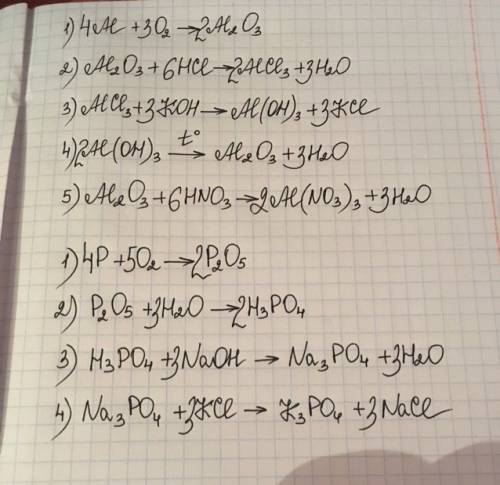 1) 4Al + 3O₂ → 2Al₂O₃
2) Al₂O₃ + 6HCl → 2AlCl₃ + 3H₂O
3) AlCl₃ + 3KOH → Al(OH)₃ + 3KCl
4) 2Al(OH)₃ →t° Al₂O₃ + 3H₂O
5) Al₂O₃ + 6HNO₃ → 2Al(NO₃)₃ + 3H₂O
1) 4P + 5O₂ → 2P₂O₅
2) P₂O₅ + 3H₂O → 2H₃PO₄
3) H₃PO₄ + 3NaOH → Na₃PO₄ + 3H₂O
4) Na₃PO₄ + 3KCl → K₃PO₄ + 3NaCl